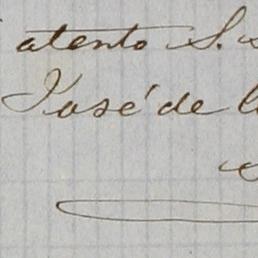 atento S. s
José de l